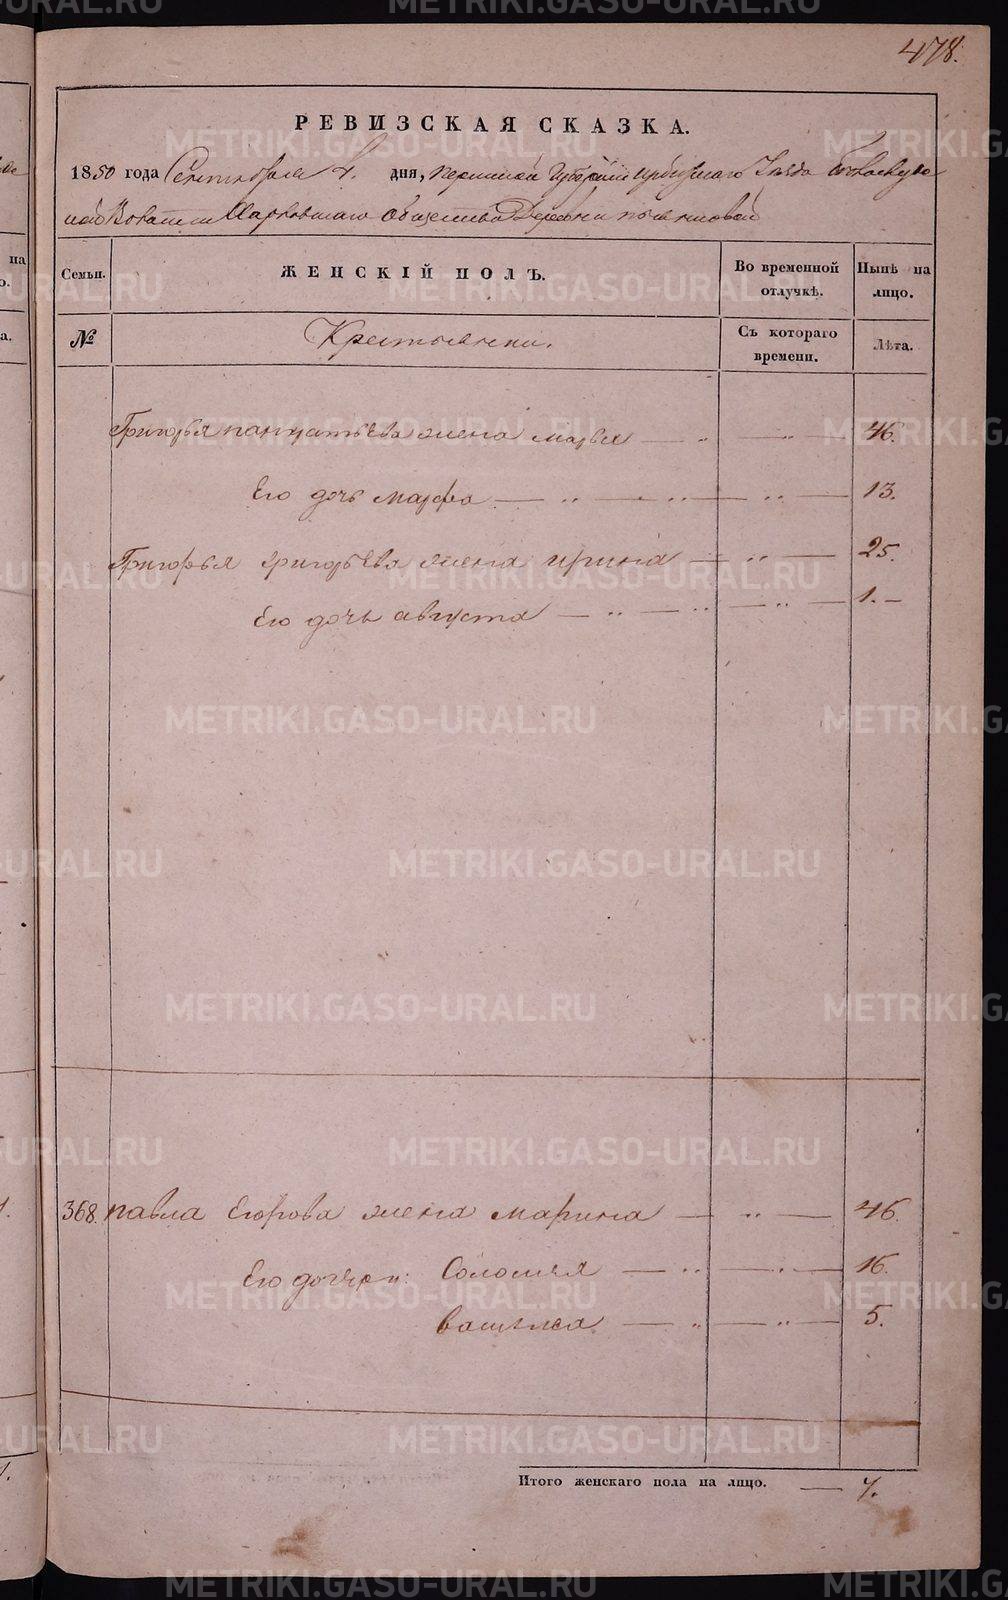 478.
РЕВИЗСКАЯ СКАЗКА.
1850 года Сентября дня, Пермской Губернии Ирбитскаго Уезда
Волости Харловскаго Общества Деревни
Семьи.
ЖЕНСКІЙ ПОЛЪ.
Во временной отлучкѣ.
Нынѣ на лицо.
№
Крестьянки.
Съ котораго времени.
Лѣта.
Григорья Панкратьева жена Марья — „ — „ — 46.
Его дочь Марфа — „ — „ — „ — 13.
Григорья Григорьева жена Ирина — „ — 25.
Его дочь Августа — „ — „ — „ — 1.—
368. Павла Егорова жена Марина — „ — 46.
Его дочери: Соломия — „ — „ — 16.
Василиса — „ — „ — 5.
Итого женскаго пола на лицо. — 7.
METRIKI.GASO-URAL.RU